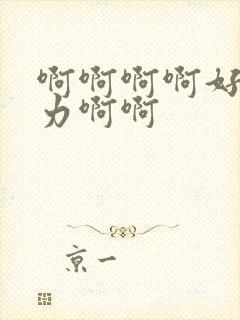 啊啊啊啊好
力啊啊
京一